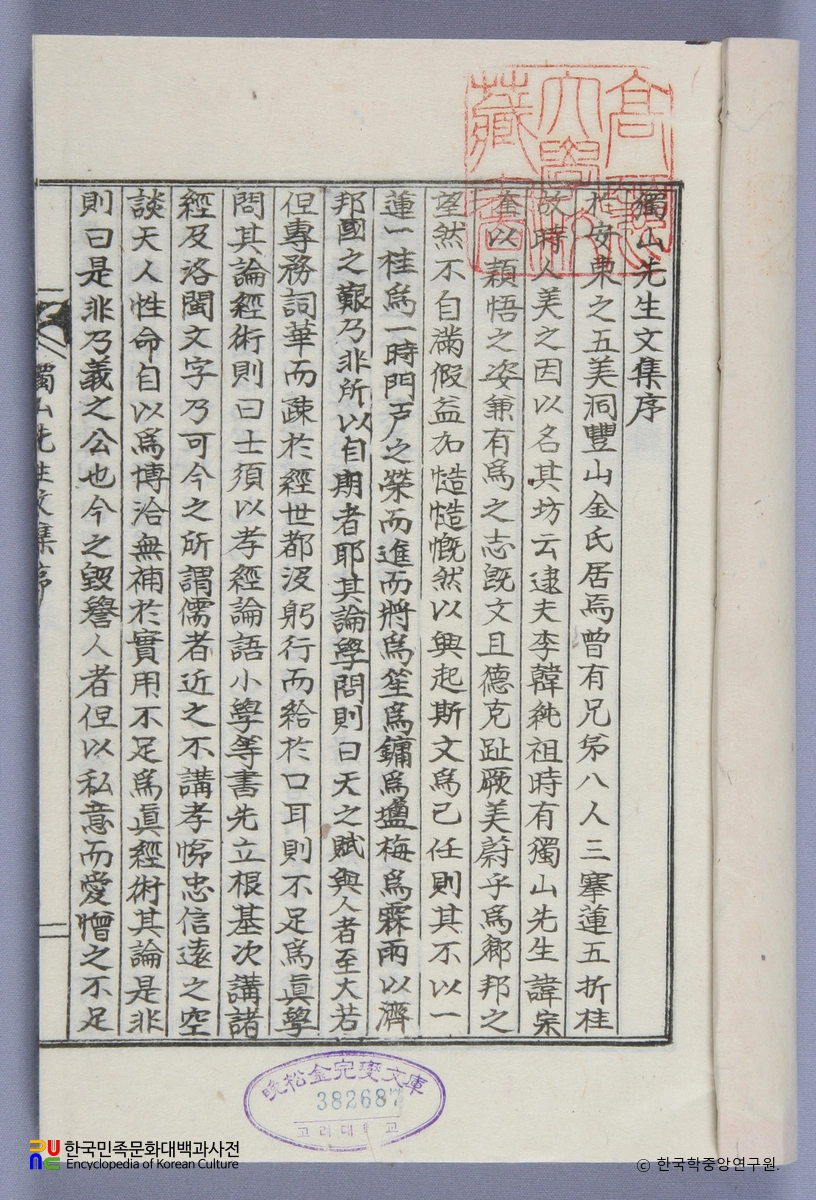 獨山先生文集序
於安東之五美洞豐山金氏居焉曾有兄弟八人三搴蓮五折桂
故時人美之因以名其坊云逮夫李韓純祖時有獨山先生諱宗
奎以穎悟之姿兼有爲之志旣文且德克趾厥美蔚乎爲鄕邦之
望然不自滿假益加慥慥慨然以興起斯文爲己任則其不以一
蓮一桂爲一時門戶之榮而進而將爲笙爲鏞爲鹽梅爲霖雨以濟
邦國之艱乃非所以自期者耶其論學問則曰天之賦與人者至大若
但專務詞華而疎於經世都沒躬行而給於口耳則不足爲眞學
問其論經術則曰士須以孝經論語小學等書先立根基次講諸
經及洛閩文字乃可今之所謂儒者近之不講孝悌忠信遠之空
談天人性命自以爲博洽無補於實用不足爲眞經術其論是非
則曰是非乃義之公也今之毀譽人者但以私意而愛憎之不足
獨山先生文集序
晩松金完燮文庫
382687
고려대학교
한국민족문화대백과사전
Encyclopedia of Korean Culture
© 한국학중앙연구원.